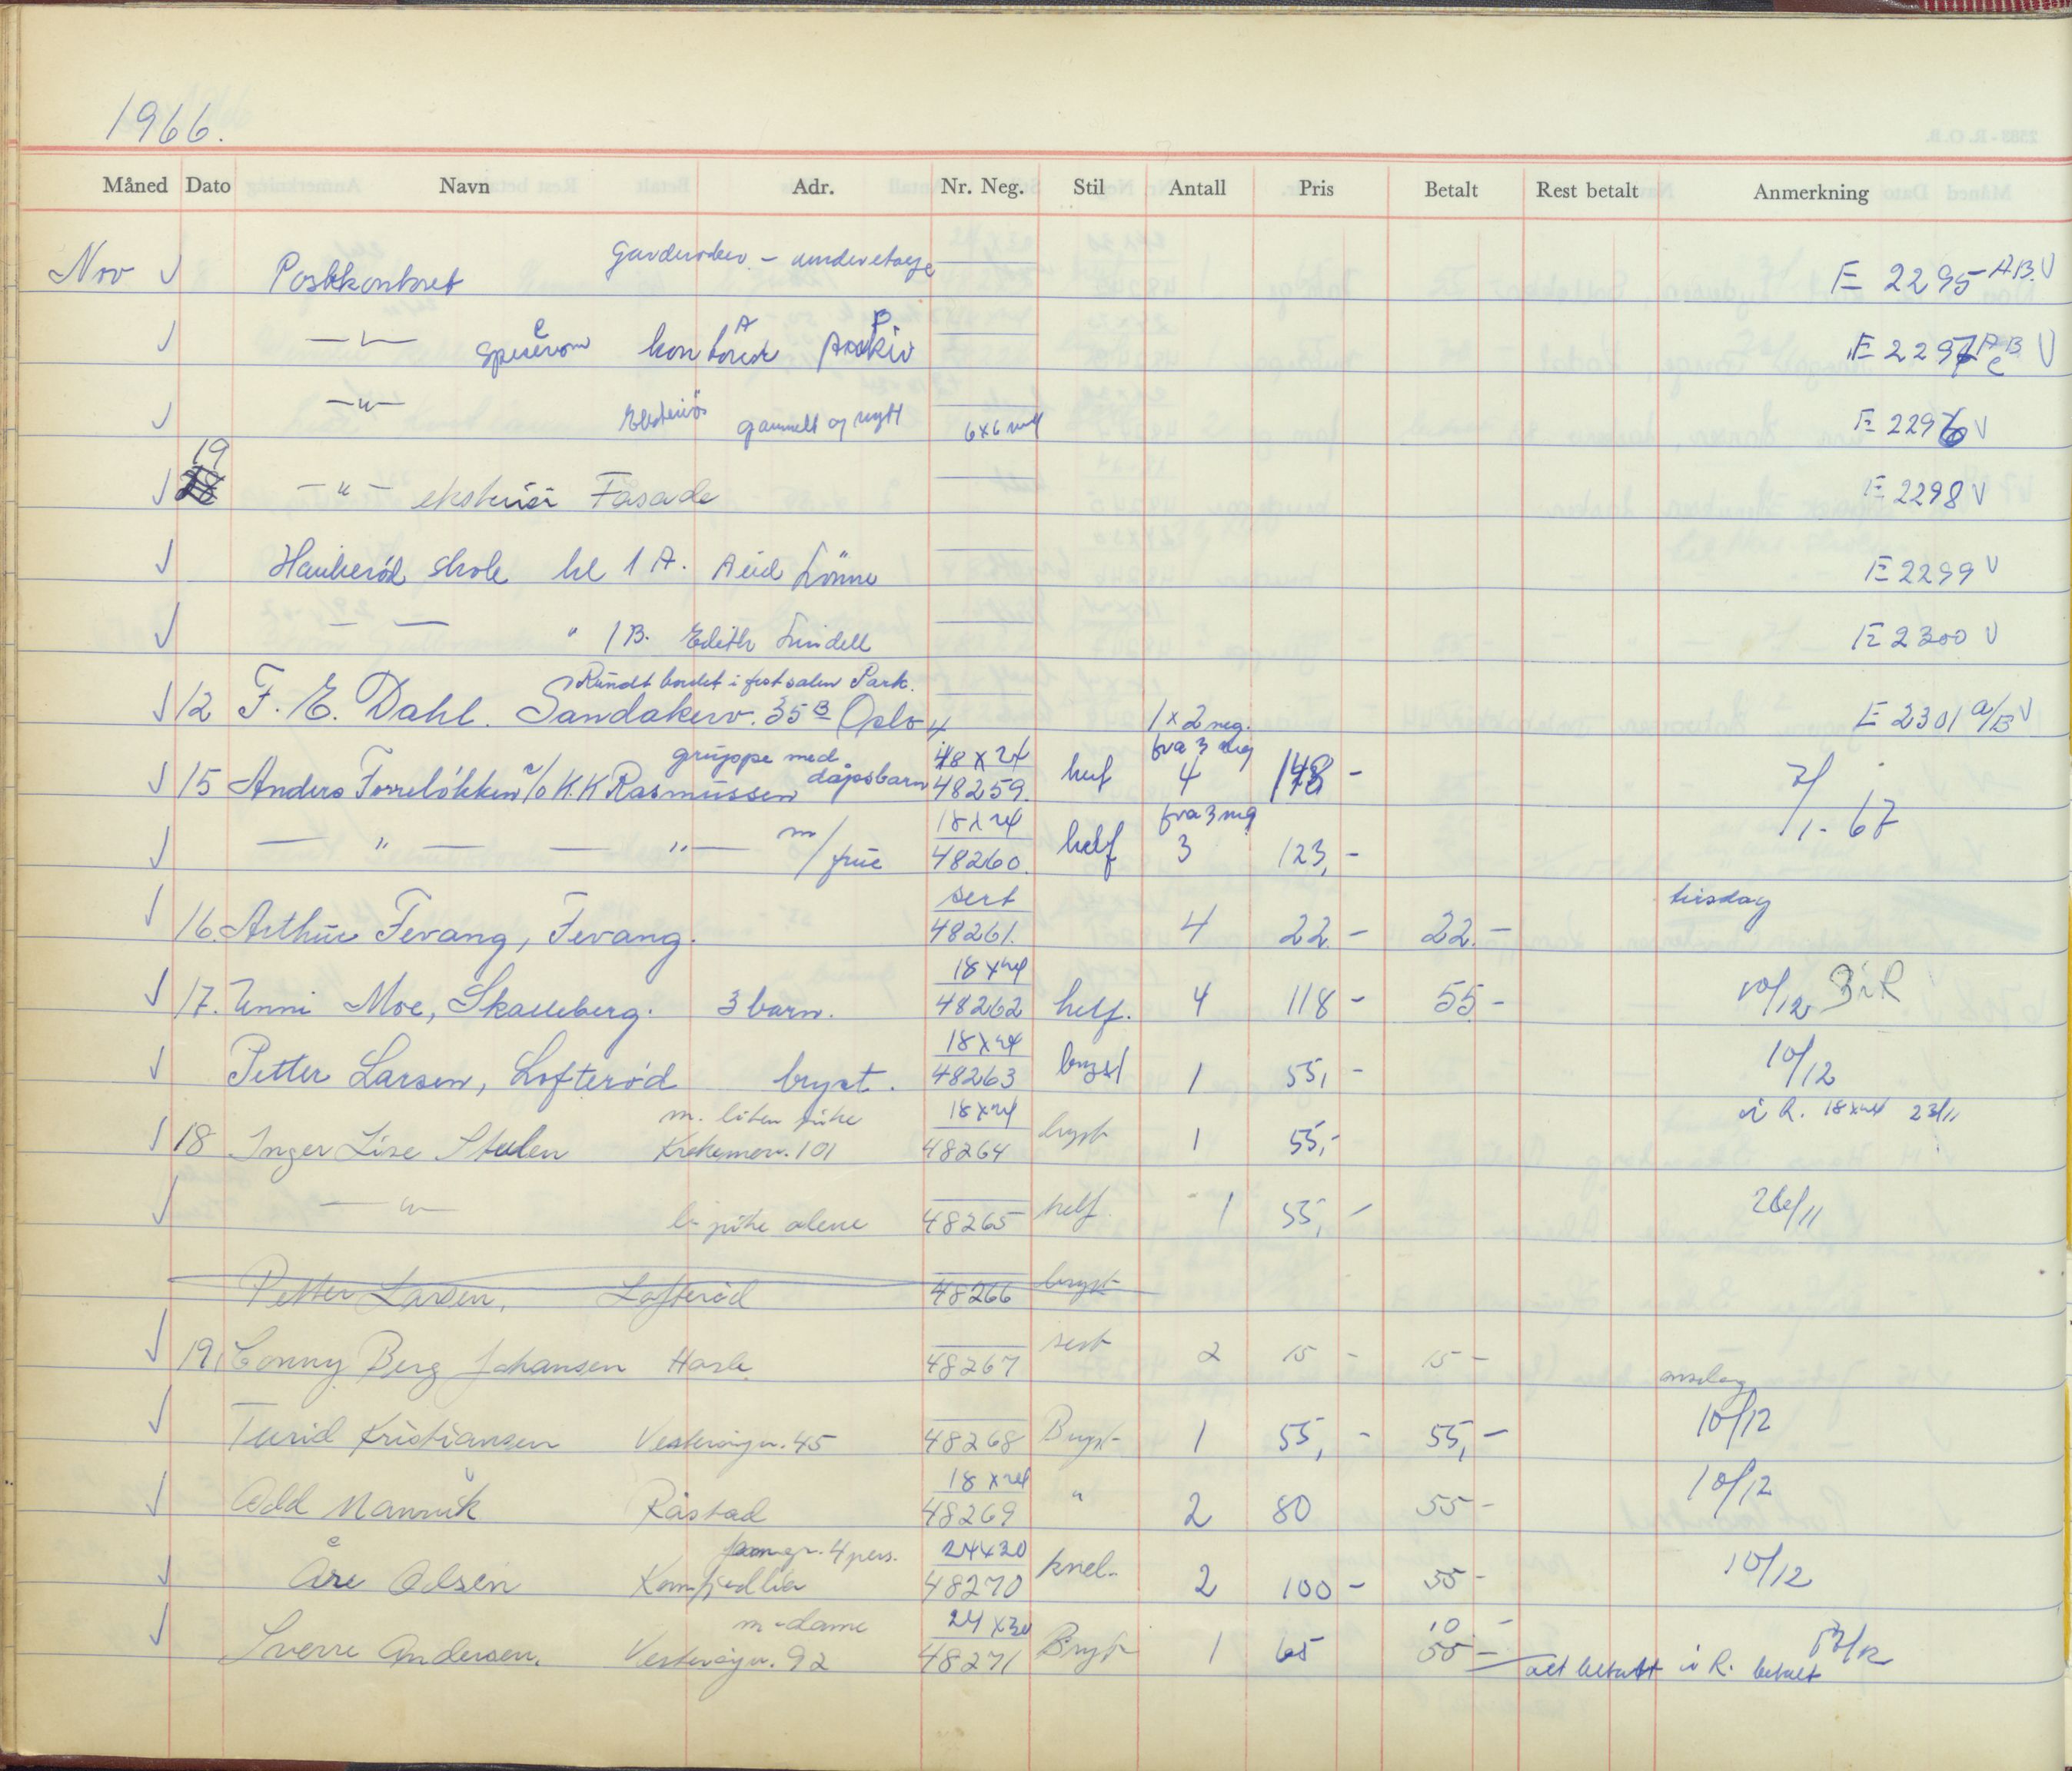 1966.
Måned Dato Navn Adr. Nr. Neg. Stil Antall Pris Betalt Rest betalt Anmerkning
Nov Postkontoret Garderober - underetasje E 2295 A.B. V
— " — spiserom C kontorer A Arkiv B E 2297 A B C V
— " — gammelt og nytt 6x6 E 2296 V
19 — " — eksteriør Fasade E 2298 V
Haukerød skole kl 1 A. Lönne E 2299 V
— — " 1 B. Edith Lindell E 2300 V
Rundt bordet i festsalen Park.
12 F. E. Dahl. Sandakerv. 35 B Oslo 4 1 x 2 neg. E 2301 a/B V
gruppe med dåpsbarn 18 x 24 fra 3 neg
15 Anders Torreløkken c/o K.K Rasmussen 48259. helf 4 148 - 7/1 - 67
18 x 24 fra 3 neg
— " — — " — m/frue 48260. helf 3 123,-
sert tirsdag
16. Arthur Tevang, Tevang. 48261. 4 22.- 22.-
18 x 24
17. Unni Moe, Skalleberg. 3 barn. 48262 helf. 4 118 - 55 - 10/12 i R
18 x 24
Petter Larsen, Lofterød bryst. 48263 bryst 1 55,- 10/12
m. liten pike 18 x 24 i R. 18 x 24 23/11
18 Inger Lise Stulen Krokemov. 101 48264 bryst 1 55,-
— " — l. pike alene 48265 helf. 1 55,- 26/11
Petter Larsen, Lofterød 48266 bryst
19, Conny Berg Johansen Hasle 48267 sert 2 15 - 15 -
onsdag
Turid Kristiansen Vesterøyv. 45 48268 Bryst 1 55,- 55,- 10/12
18 x 24
Odd Mannvik Råstad 48269 " 2 80 55 - 10/12
fam gr. 4 pers. 24x30
Åre Olsen Kamfjordlia 48270 knel. 2 100 - 55 - 10/12
m - dame 24 x 30 10 -
Sverre Andersen. Vesterøyv. 92 48271 Bryst 1 65 55 - alt betalt i R. betalt